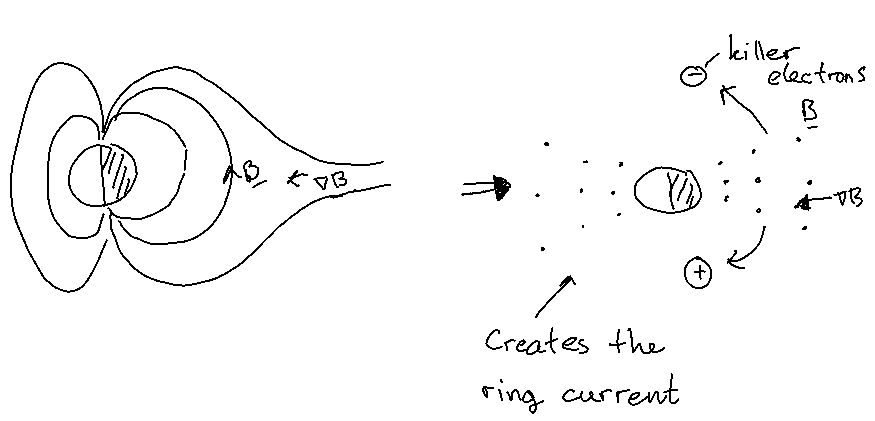 B
∇B
⊖ killer
electrons
B
∇B
⊕
Creates the
ring current